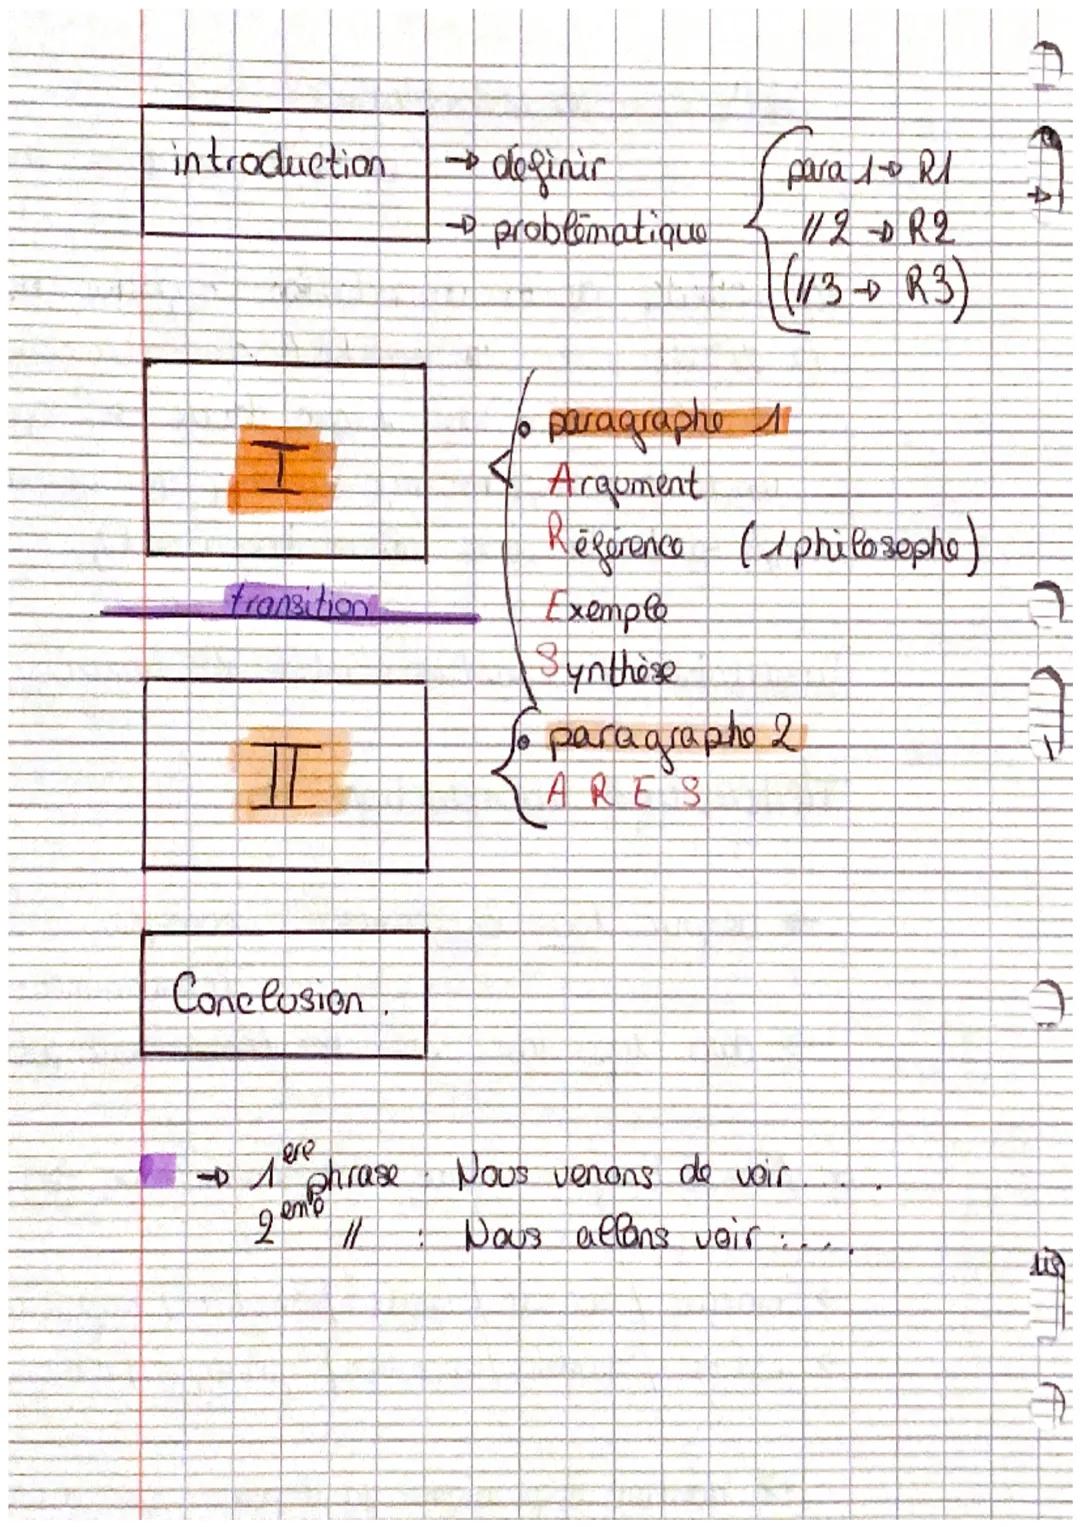 introduction → définir
→ problématique
para 1 → R1
// 2 → R2
(// 3 → R3)
I
• paragraphe 1
Argument
Référence (1 philosophe)
Exemple
Synthèse
transition
II
• paragraphe 2
A R E S
Conclusion.
→ 1ère phrase : Nous venons de voir ....
2ème // : Nous allons voir : ....